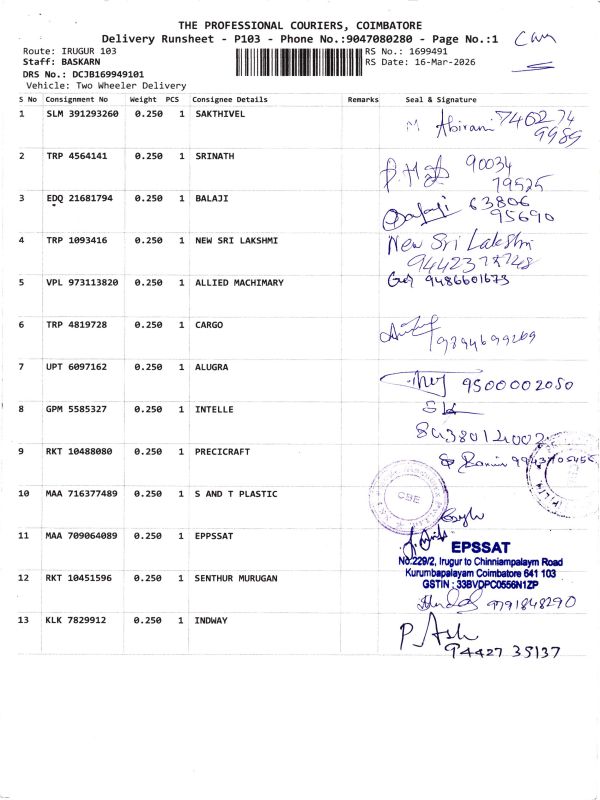 THE PROFESSIONAL COURIERS, COIMBATORE
Delivery Runsheet - P103 - Phone No.:9047080280 - Page No.:1
Route: IRUGUR 103
RS No.: 1699491
Staff: BASKARN
RS Date: 16-Mar-2026
DRS No.: DCJB169949101
Vehicle: Two Wheeler Delivery
S No Consignment No Weight PCS Consignee Details Remarks Seal & Signature
1 SLM 391293260 0.250 1 SAKTHIVEL M Abirami 746274
9989
2 TRP 4564141 0.250 1 SRINATH 90034
79525
3 EDQ 21681794 0.250 1 BALAJI Balaji 63806
95690
4 TRP 1093416 0.250 1 NEW SRI LAKSHMI New Sri Lakshmi
5 VPL 973113820 0.250 1 ALLIED MACHIMARY 9486601673
6 TRP 4819728 0.250 1 CARGO 9894699269
7 UPT 6097162 0.250 1 ALUGRA 9500002050
8 GPM 5585327 0.250 1 INTELLE
9 RKT 10488080 0.250 1 PRECICRAFT
10 MAA 716377489 0.250 1 S AND T PLASTIC CBE
11 MAA 709064089 0.250 1 EPPSSAT
EPSSAT
No.229/2, Irugur to Chinniampalaym Road
Kurumbapalayam Coimbatore 641 103
GSTIN : 33BVDPC0556N1ZP
12 RKT 10451596 0.250 1 SENTHUR MURUGAN 9791848290
13 KLK 7829912 0.250 1 INDWAY P Ash
94427 35137